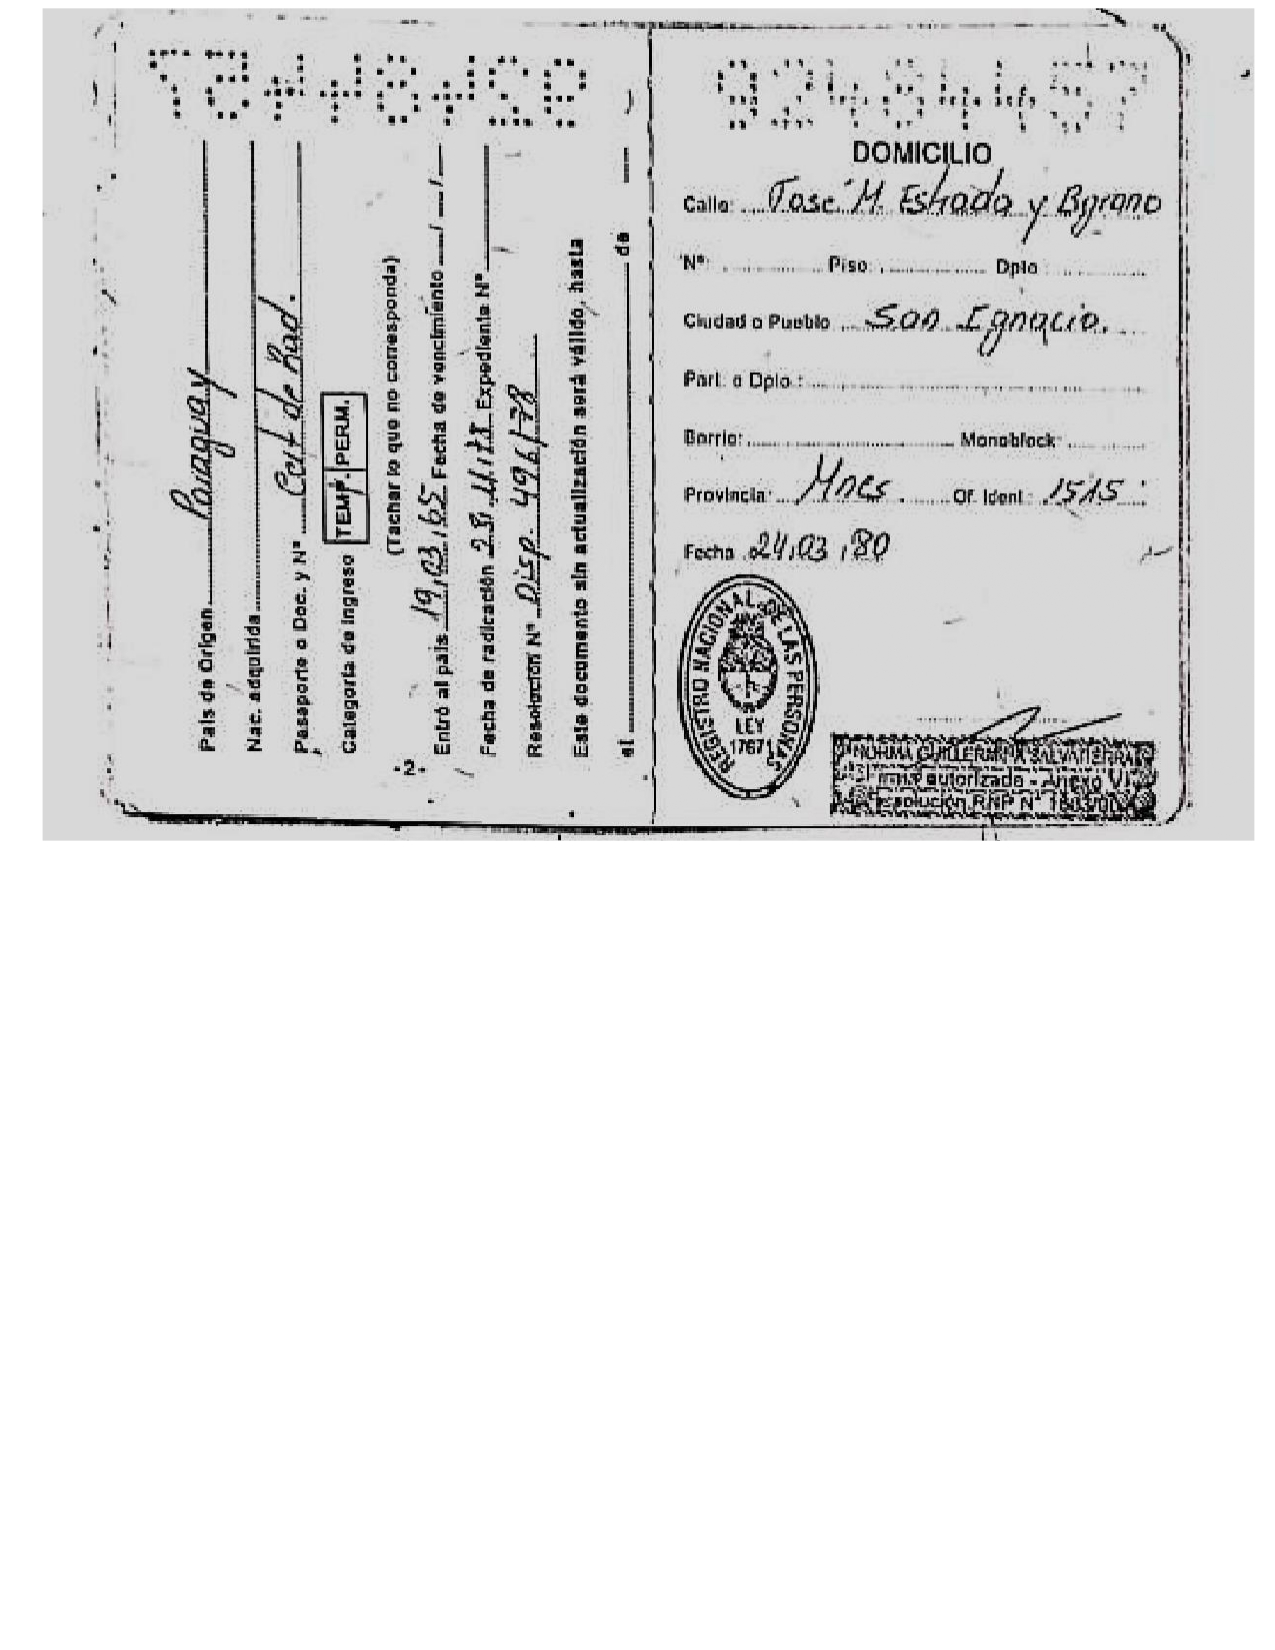 País de Origen Paraguay
Nac. adquirida
Pasaporte o Doc. y Nº Cert de Rad.
Categoría de ingreso TEMP. PERM.
(Tachar lo que no corresponda)
Entró al país 19,03,65 Fecha de vencimiento / /
Fecha de radicación Expediente Nº
Resolución Nº Disp. 496/78
Este documento sin actualización será válido, hasta
el de
-2-
92484457
DOMICILIO
Calle: José M. Estrada y
Nº: Piso: Dpto
Ciudad o Pueblo San Ignacio.
Part. o Dpto.:
Barrio: Monoblock:
Provincia: Mnes. Of. Ident.: 1515
Fecha 24,03,80
REGISTRO NACIONAL DE LAS PERSONAS
LEY
17671
NORMA GUILLERMINA SALVATIERRA
Firma autorizada - Anexo VI
Resolución RNP Nº